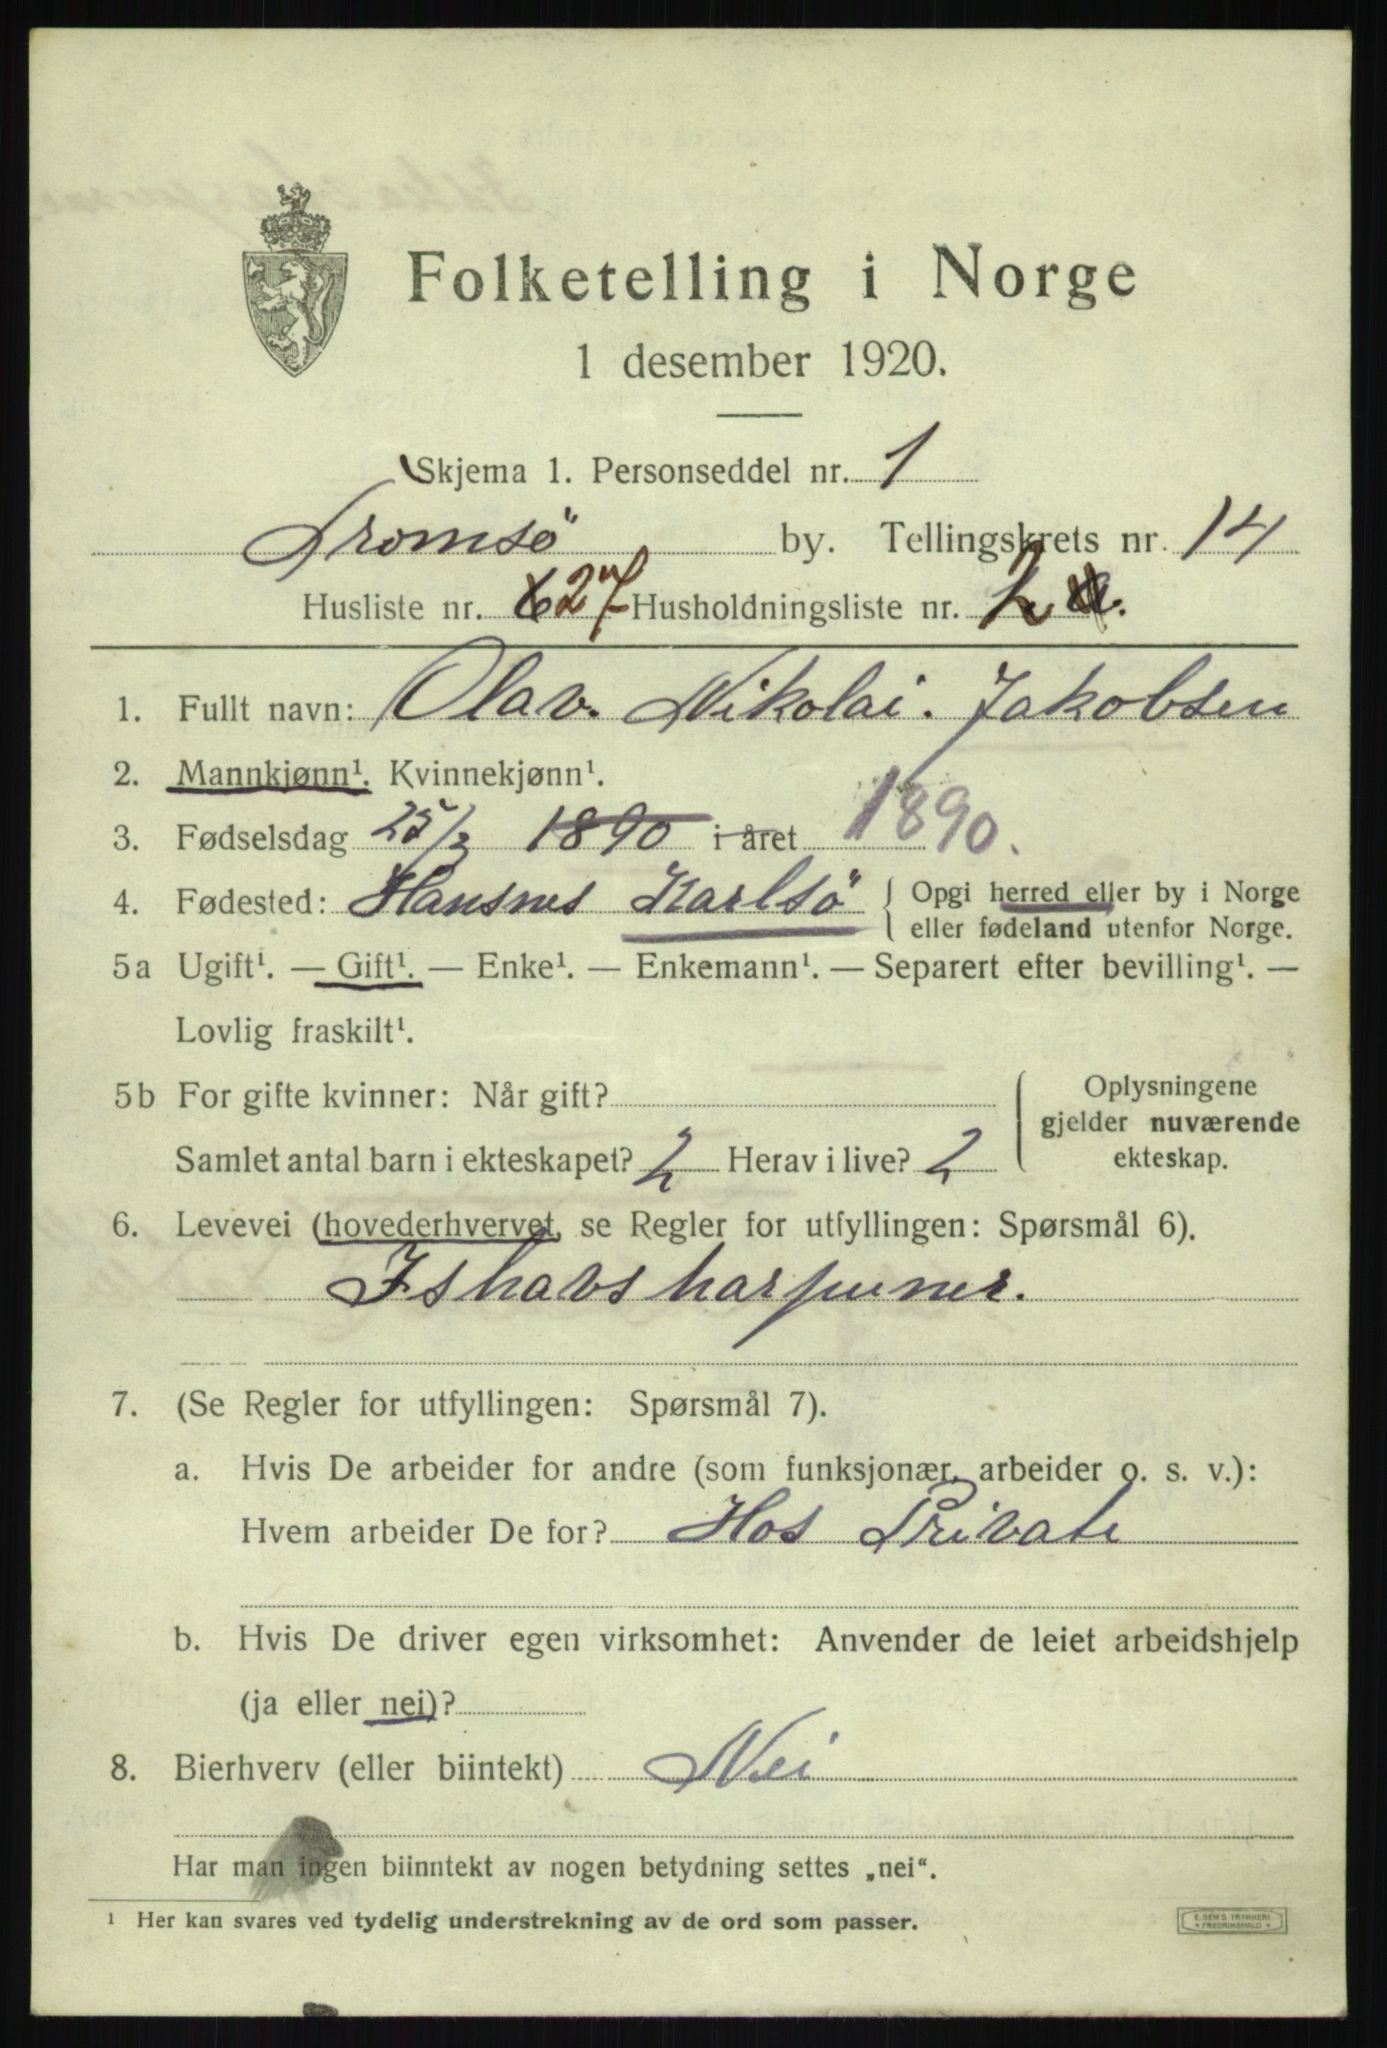 Folketelling i Norge
1 desember 1920.
Skjema 1. Personseddel nr. 1
Tromsö by. Tellingskrets nr. 14
Husliste nr. 627 Husholdningsliste nr. 2
1. Fullt navn: Olav. Nikolai. Jakobsen
2. Mannkjønn¹. Kvinnekjønn¹.
3. Fødselsdag 25/3 1890 i året 1890.
4. Fødested: Hansnes Karlsö { Opgi herred eller by i Norge
eller fødeland utenfor Norge.
5a Ugift¹. — Gift¹. — Enke¹. — Enkemann¹. — Separert efter bevilling¹. —
Lovlig fraskilt¹.
5b For gifte kvinner: Når gift?
Samlet antal barn i ekteskapet? 2 Herav i live? 2
Oplysningene
gjelder nuværende
ekteskap.
6. Levevei (hovederhvervet, se Regler for utfyllingen: Spørsmål 6).
Ishavsharpuner.
7. (Se Regler for utfyllingen: Spørsmål 7).
a. Hvis De arbeider for andre (som funksjonær, arbeider o. s. v.):
Hvem arbeider De for? Hos Private
b. Hvis De driver egen virksomhet: Anvender de leiet arbeidshjelp
(ja eller nei)?
8. Bierhverv (eller biintekt) Nei
Har man ingen biinntekt av nogen betydning settes „nei“.
¹ Her kan svares ved tydelig understrekning av de ord som passer.
E. SEM'S TRYKKERI
• FREDRIKSHALD •